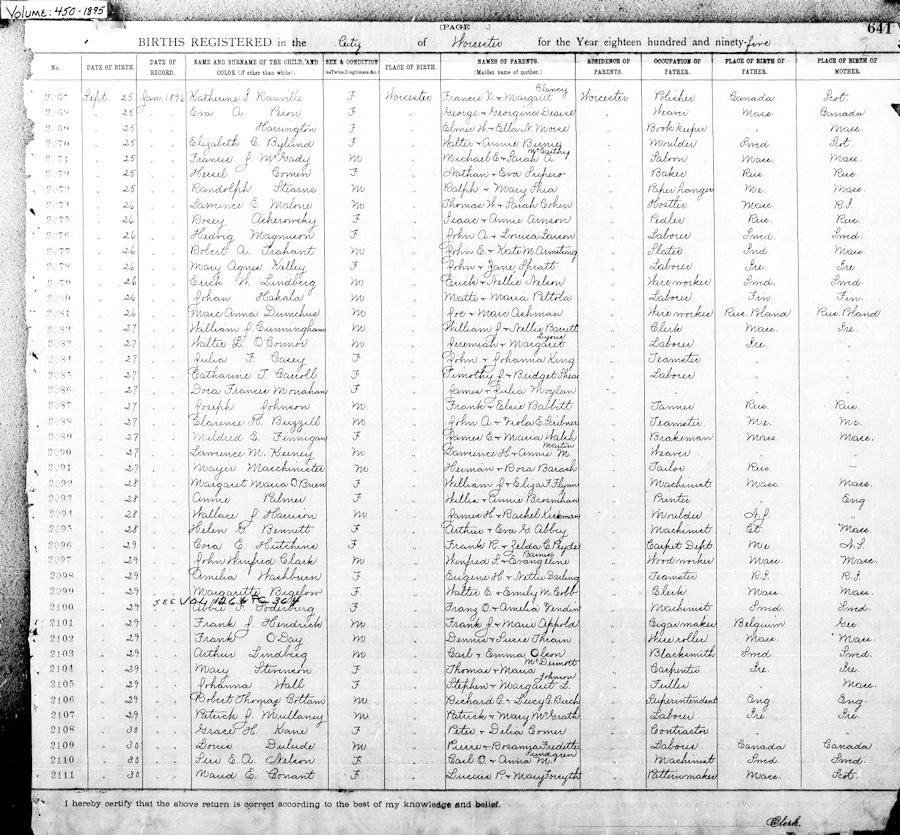 VOLUME: 450-1895
(PAGE ) 641
BIRTHS REGISTERED in the City of Worcester for the Year eighteen hundred and ninety-five
No. DATE OF BIRTH. DATE OF RECORD. NAME AND SURNAME OF THE CHILD, AND COLOR (if other than white). SEX & CONDITION (as Twins, Illegitimate, &c.) PLACE OF BIRTH. NAMES OF PARENTS. (Maiden name of mother.) RESIDENCE OF PARENTS. OCCUPATION OF FATHER. PLACE OF BIRTH OF FATHER. PLACE OF BIRTH OF MOTHER.
2067 Sept. 25 Jan. 1896 Katherine I. F Worcester Francis & Margaret Clancy Worcester Canada Scot.
2068 " 25 " " Eva A. Peron F " George & Georgina " Weaver Mass. Canada
2069 " 25 " " Harrington F " Elmer W. & Ella N. Morse " Book keeper " Mass.
2070 " 25 " " Elizabeth C. Bylund F " Walter & Annie Birnie " Moulder Swed. Scot.
2071 " 25 " " Francis J. McGrady M " Michael E. & Sarah A. McCarthy " Saloon Mass. Mass.
2072 " 25 " " Comin F " Nathan & Eva " Baker Rus. Rus.
2073 " 25 " " Randolph Stearns M " Ralph & Mary Shea " Paper hanger Me. Mass.
2074 " 26 " " Lawrence E. Malone M " Thomas W. & Sarah Cohen " Hostler Mass. R.I.
2075 " 26 " " F " Isaac & Annie " Pedler Rus. Rus.
2076 " 26 " " Hedvig Magnuson F " John A. & Louisa Larson " Laborer Swed. Swed.
2077 " 26 " " Robert A. Trahant M " John E. & Kate M. Armstrong " Slater Ind Mass
2078 " 26 " " Mary Agnes Kelley F " John & Jane Spratt " Laborer Ire Ire
2079 " 26 " " Erick W. Lindberg M " Erick & Nellie Nelson " Wire worker Swed. Swed.
2080 " 26 " " Johan Hakala M " Matts & Maria " Laborer Fin Fin.
2081 " 26 " " Anna M " Joe & " Wire worker Rus. Poland Rus. Poland
2082 " 27 " " William J. Cunningham M " William J. & Nellie Barrett " Clerk Mass. Ire.
2083 " 27 " " Walter L. O'Connor M " Jeremiah & Margaret Lyons " Laborer Ire. "
2084 " 27 " " Julia F. Casey F " John & Johanna King " Teamster " "
2085 " 27 " " Catharine T. Carroll F " Timothy J. & Bridget Shea " Laborer " "
2086 " 27 " " Dora Frances Monahan F " James & Julia Moylan " " " "
2087 " 27 " " Joseph Johnson M " Frank & Elsie Babbitt " Tanner Rus. Rus.
2088 " 27 " " Clarence H. Buzzell M " John A. & Viola E. Scribner " Teamster Me. Me.
2089 " 27 " " Mildred E. Finnigan F " James E. & Maria Walsh " Brakeman Mass. Mass.
2090 " 27 " " Lawrence M. Keeney M " Lawrence H. & Annie M. Martin " Weaver " "
2091 " 27 " " Mayer M " Heiman & Rosa Barash " Tailor Rus. "
2092 " 28 " " Margaret Maria O'Brien F " William J. & Eliza F. Flynn " Machinist Mass. Mass.
2093 " 28 " " Annie Palmer F " Willie & Annie Brosnihan " Printer " Eng
2094 " 28 " " Wallace J. Harrison M " James H. & Rachel " Moulder N.J. "
2095 " 28 " " Helen G. Bennett F " Arthur & Eva G. Abbey " Machinist Ct. Mass.
2096 " 29 " " Cora E. Hutchins F " Frank R. & Zelda C. " Carpet Dept. Me. N.S.
2097 " 29 " " John Winfred Clark M " Winfred S. & Evangeline Barnes " Wood worker Mass. Mass.
2098 " 29 " " Amelia Washburn F " Eugene H. & Nettie Darling " Teamster R.I. R.I.
2099 " 29 " " Margarette Bigelow F " Walter E. & Emily M. Cobb " Clerk Mass. Mass.
SEE VOL 126 PG 364
2100 " 29 " " F. Soderburg F " Franz O. & Amelia " Machinist Swed. Swed.
2101 " 29 " " Frank J. Hendrick M " Frank J. & Marie Appold " Cigar maker Belguim Ger.
2102 " 29 " " Frank O'Day M " Dennis & Susie " Wire roller Mass. Mass.
2103 " 29 " " Arthur Lindberg M " Carl & Emma Olson " Blacksmith Swed. Swed.
2104 " 29 " " Mary Stevenson F " Thomas & Maria McDermott " Carpenter Ire. Ire.
2105 " 29 " " Johanna Wall F " Stephen & Margaret L. Johnson " Fuller " Mass.
2106 " 29 " " Robert Thomas Cottam M " Richard C. & Lucy E. Birch " Superintendent Eng. Eng.
2107 " 29 " " Patrick J. Mullaney M " Patrick & Mary McGrath " Laborer Ire. Ire.
2108 " 30 " " Grace H. Kane F " Peter & Delia Comer " Contractor " "
2109 " 30 " " Louis Dulude M " Pierre & Fredette " Laborer Canada Canada
2110 " 30 " " E. A. Nelson F " Carl O. & Anna M. Lundgren " Machinist Swed. Swed.
2111 " 30 " " Maud E. Conant F " Lucius P. & Mary Forsyth " Patternmaker Mass. Scot.
I hereby certify that the above return is correct according to the best of my knowledge and belief.
Clerk.